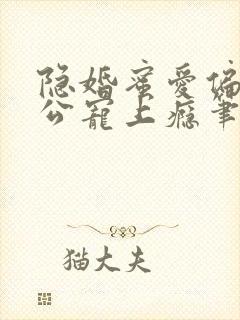 隐婚蜜爱偏
公宠上瘾笔
猫大夫